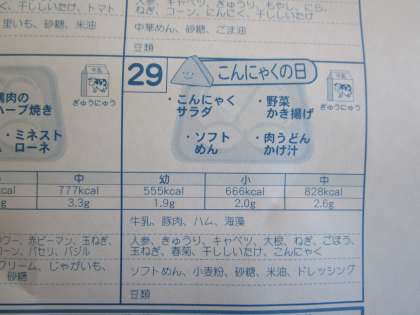 、干ししいたけ、トマト
里いも、砂糖、米油
ねぎ、コーン、にんにく、干ししいたけ
中華めん、砂糖、ごま油
豆類
牛乳
ぎゅうにゅう
鶏肉の
ハーブ焼き
・ミネスト
ローネ
29
こんにゃくの日
・こんにゃく
サラダ
・野菜
かき揚げ
・ソフト
めん
・肉うどん
かけ汁
牛乳
ぎゅうにゅう
中
幼
小
中
kcal
777kcal
555kcal
666kcal
828kcal
3.3g
1.9g
2.0g
2.6g
牛乳、豚肉、ハム、海藻
ワー、赤ピーマン、玉ねぎ、
コーン、パセリ、バジル
人参、きゅうり、キャベツ、大根、ねぎ、ごぼう、
玉ねぎ、春菊、干ししいたけ、こんにゃく
クリーム、じゃがいも、
砂糖
ソフトめん、小麦粉、砂糖、米油、ドレッシング
豆類